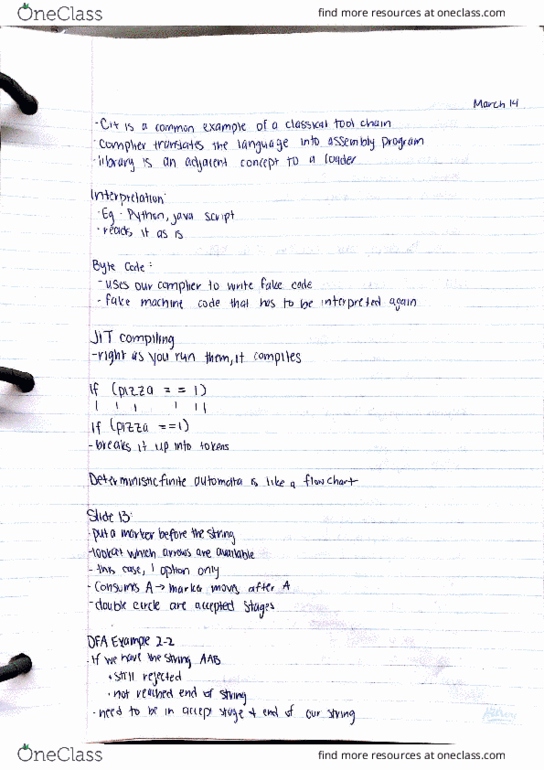 OneClass
find more resources at oneclass.com
March 14
- C++ is a common example of a classical tool chain
- compiler translates the language into assembly program
- library is an adjacent concept to a loader
Interpretation:
· Eg. Python, java script
· reads it as is
Byte Code:
- uses our compiler to write fake code
- fake machine code that has to be interpreted again
JIT compiling
- right as you run them, it compiles
If (pizza = = 1)
If (pizza ==1)
- breaks it up into tokens
Deterministic finite automata is like a flowchart
Slide 13:
- put a marker before the string
- look at which arrows are available
- this case, 1 option only
- consumes A → marker moves after A
- double circle are accepted stages
DFA Example 2-2
- If we have the string AAB
• still rejected
• not reached end of string
- need to be in accept stage + end of our string
OneClass
find more resources at oneclass.com